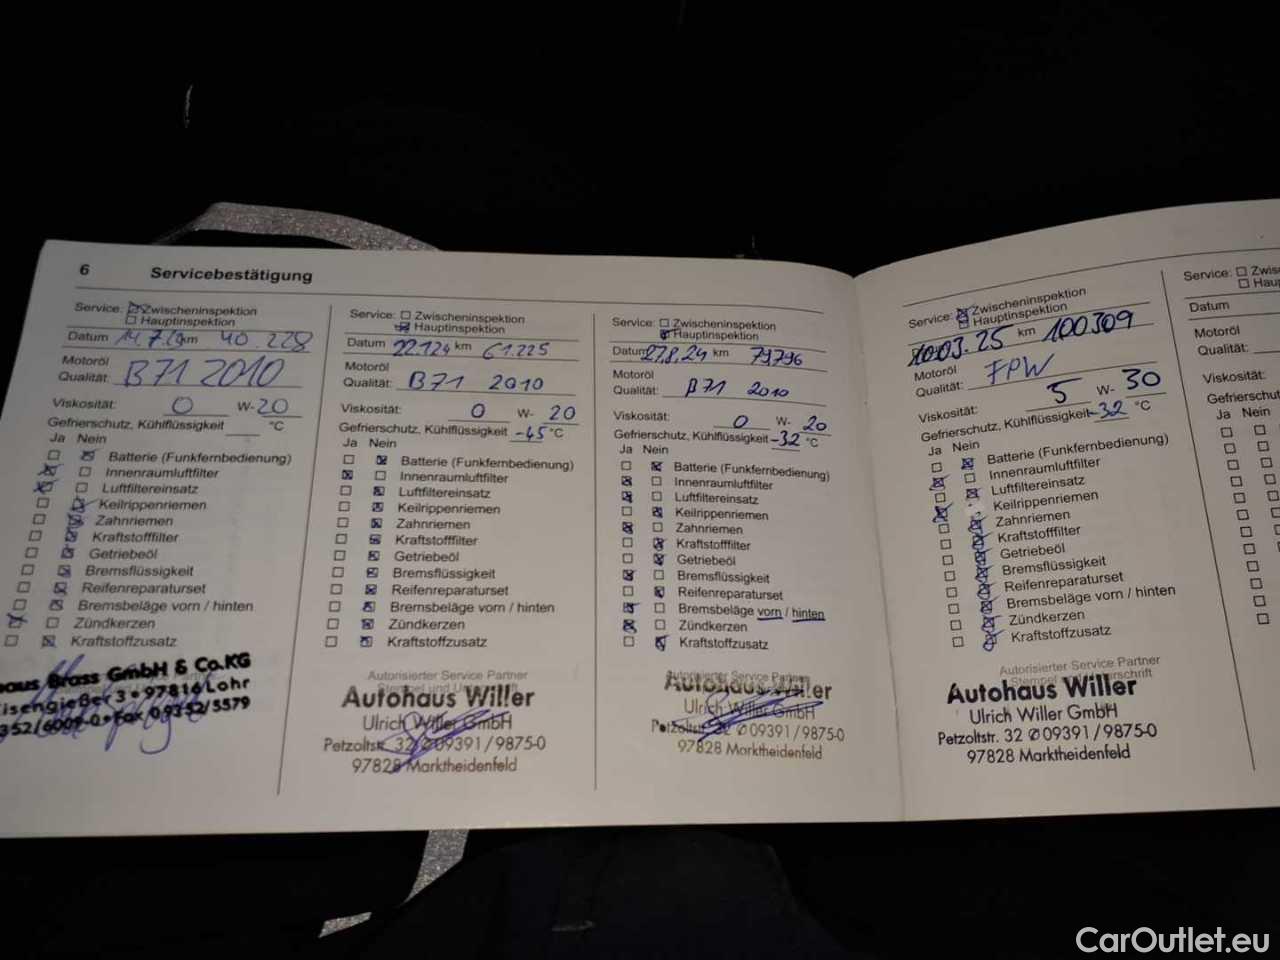 6 Servicebestätigung
Service: Zwischeninspektion
Hauptinspektion
Datum 14.7. km 40.228
Motoröl
Qualität: B71 2010
Viskosität: 0 W- 20
Gefrierschutz, Kühlflüssigkeit °C
Ja Nein
Batterie (Funkfernbedienung)
Innenraumluftfilter
Luftfiltereinsatz
Keilrippenriemen
Zahnriemen
Kraftstofffilter
Getriebeöl
Bremsflüssigkeit
Reifenreparaturset
Bremsbeläge vorn / hinten
Zündkerzen
Kraftstoffzusatz
aus Brass GmbH & Co.KG
isengießer 3 • 97816 Lohr
352/6009-0 • Fax 09352/5579
Service: Zwischeninspektion
Hauptinspektion
Datum 22.124 km 61.225
Motoröl
Qualität: B71 2010
Viskosität: 0 W- 20
Gefrierschutz, Kühlflüssigkeit -45 °C
Ja Nein
Batterie (Funkfernbedienung)
Innenraumluftfilter
Luftfiltereinsatz
Keilrippenriemen
Zahnriemen
Kraftstofffilter
Getriebeöl
Bremsflüssigkeit
Reifenreparaturset
Bremsbeläge vorn / hinten
Zündkerzen
Kraftstoffzusatz
Autorisierter Service Partner
Autohaus Willer
Ulrich Willer GmbH
Petzoltstr. 32 ✆ 09391/9875-0
97828 Marktheidenfeld
Service: Zwischeninspektion
Hauptinspektion
Datum 27.8.24 km 79796
Motoröl
Qualität: B71 2010
Viskosität: 0 W- 20
Gefrierschutz, Kühlflüssigkeit -32 °C
Ja Nein
Batterie (Funkfernbedienung)
Innenraumluftfilter
Luftfiltereinsatz
Keilrippenriemen
Zahnriemen
Kraftstofffilter
Getriebeöl
Bremsflüssigkeit
Reifenreparaturset
Bremsbeläge vorn / hinten
Zündkerzen
Kraftstoffzusatz
Autorisierter Service Partner
Autohaus Willer
Ulrich Willer GmbH
Petzoltstr. 32 ✆ 09391/9875-0
97828 Marktheidenfeld
Service: Zwischeninspektion
Hauptinspektion
03.25 km 100309
Motoröl
Qualität: FPW
Viskosität: 5 W- 30
Gefrierschutz, Kühlflüssigkeit -32 °C
Ja Nein
Batterie (Funkfernbedienung)
Innenraumluftfilter
Luftfiltereinsatz
Keilrippenriemen
Zahnriemen
Kraftstofffilter
Getriebeöl
Bremsflüssigkeit
Reifenreparaturset
Bremsbeläge vorn / hinten
Zündkerzen
Kraftstoffzusatz
Autorisierter Service Partner
Autohaus Willer
Ulrich Willer GmbH
Petzoltstr. 32 ✆ 09391/9875-0
97828 Marktheidenfeld
Service: Zwis
Haup
Datum
Motoröl
Qualität:
Viskosität:
Gefrierschut
Ja Nein
CarOutlet.eu